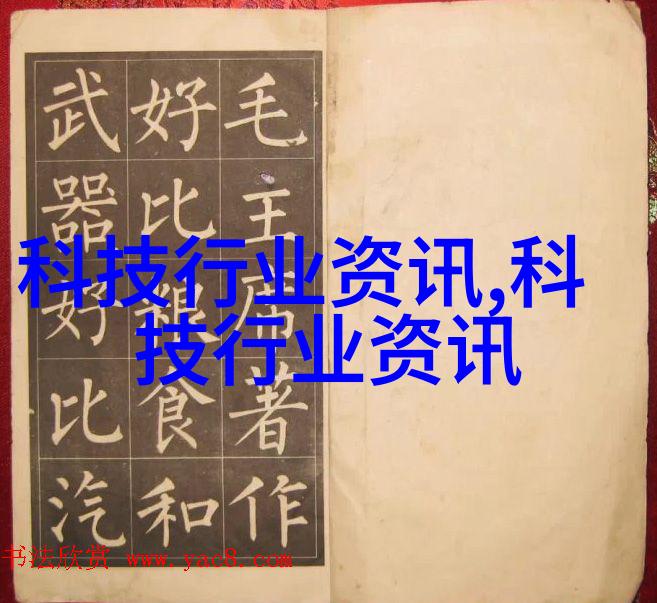 毛主席著作
好比粮食和
武器好比汽
科技行业资讯,科
技行业资讯
书法欣赏 www.yac8.com